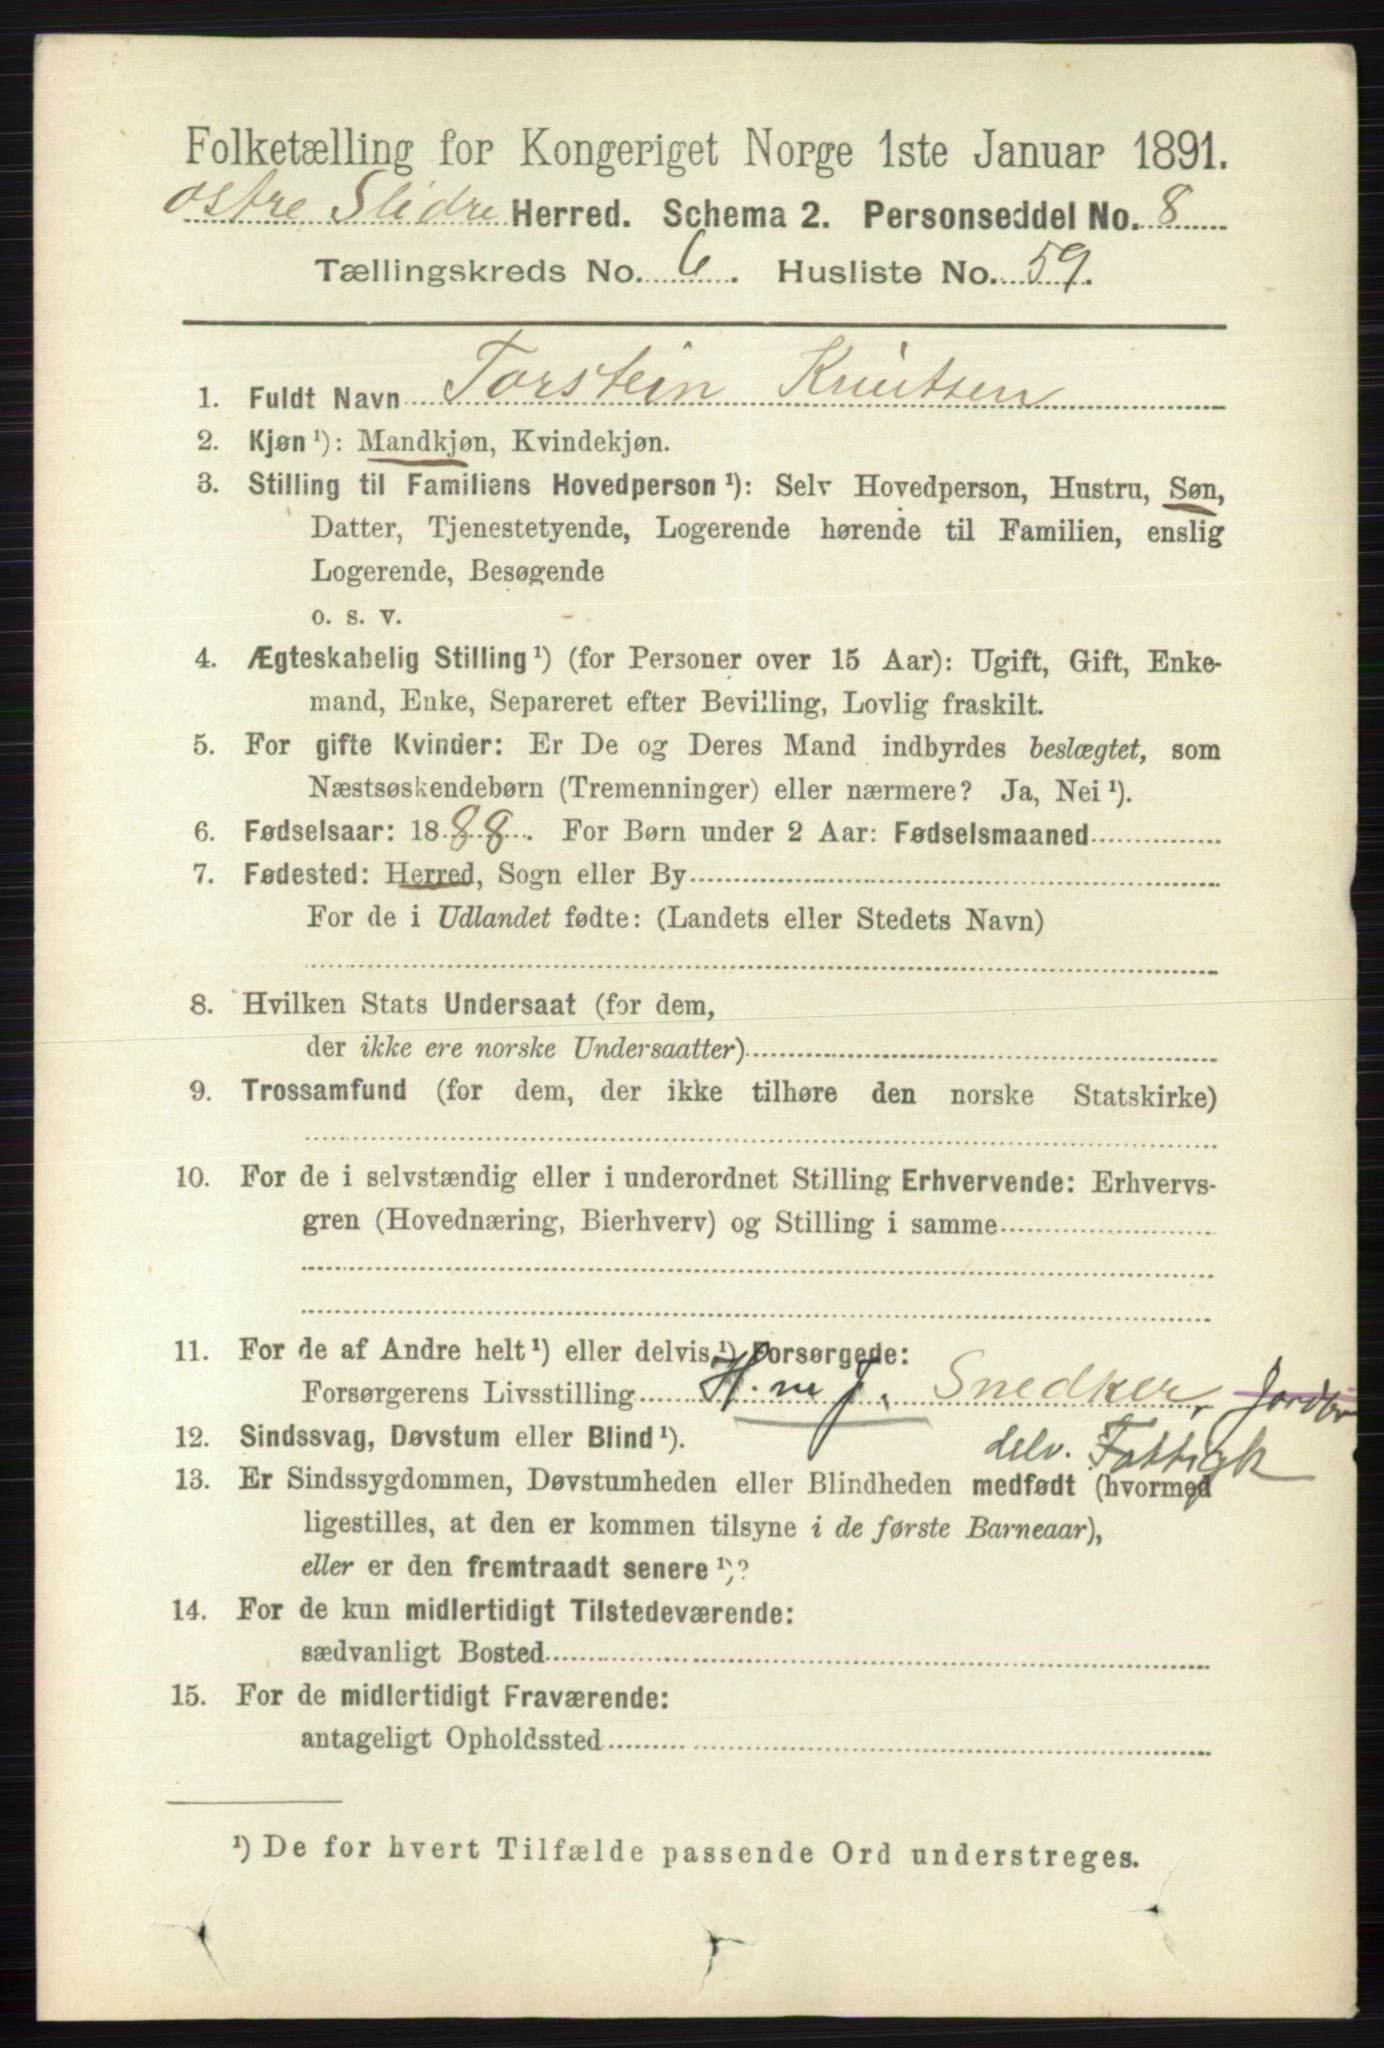 Folketælling for Kongeriget Norge 1ste Januar 1891.
Østre Slidre Herred. Schema 2. Personseddel No. 8
Tællingskreds No. 6. Husliste No. 59.
1. Fuldt Navn Torstein Knutsen
2. Kjøn¹): Mandkjøn, Kvindekjøn.
3. Stilling til Familiens Hovedperson¹): Selv Hovedperson, Hustru, Søn,
Datter, Tjenestetyende, Logerende hørende til Familien, enslig
Logerende, Besøgende
o. s. v.
4. Ægteskabelig Stilling¹) (for Personer over 15 Aar): Ugift, Gift, Enke-
mand, Enke, Separeret efter Bevilling, Lovlig fraskilt.
5. For gifte Kvinder: Er De og Deres Mand indbyrdes beslægtet, som
Næstsøskendebørn (Tremenninger) eller nærmere? Ja, Nei¹).
6. Fødselsaar: 1888. For Børn under 2 Aar: Fødselsmaaned
7. Fødested: Herred, Sogn eller By
For de i Udlandet fødte: (Landets eller Stedets Navn)
8. Hvilken Stats Undersaat (for dem,
der ikke ere norske Undersaatter)
9. Trossamfund (for dem, der ikke tilhøre den norske Statskirke)
10. For de i selvstændig eller i underordnet Stilling Erhvervende: Erhvervs-
gren (Hovednæring, Bierhverv) og Stilling i samme
11. For de af Andre helt¹) eller delvis¹) Forsørgede:
Forsørgerens Livsstilling H. m J. Snedker, Jordbr
12. Sindssvag, Døvstum eller Blind¹). delv. Fattigk
13. Er Sindssygdommen, Døvstumheden eller Blindheden medfødt (hvormed
ligestilles, at den er kommen tilsyne i de første Barneaar),
eller er den fremtraadt senere¹)?
14. For de kun midlertidigt Tilstedeværende:
sædvanligt Bosted
15. For de midlertidigt Fraværende:
antageligt Opholdssted
¹) De for hvert Tilfælde passende Ord understreges.